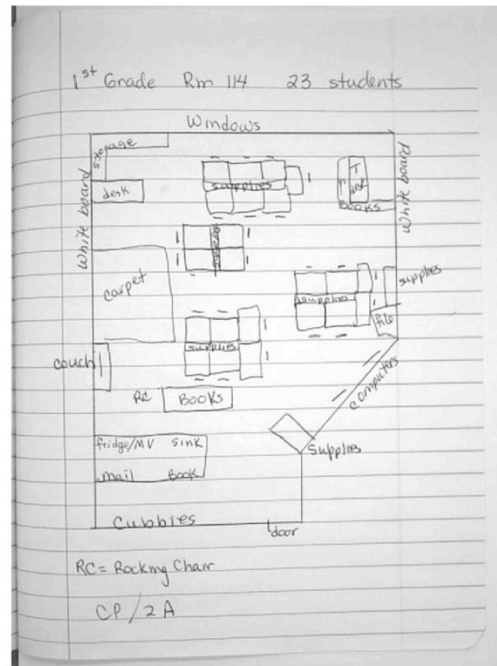 1st Grade Rm 114 23 students
Windows
storage
White board
desk
supplies
Books
White board
carpet
supplies
supplies
file
supplies
couch
RC
BOOKS
computers
fridge/MV Sink
mail Book
Supplies
Cubbies
door
RC = Rocking Chair
CP/2A